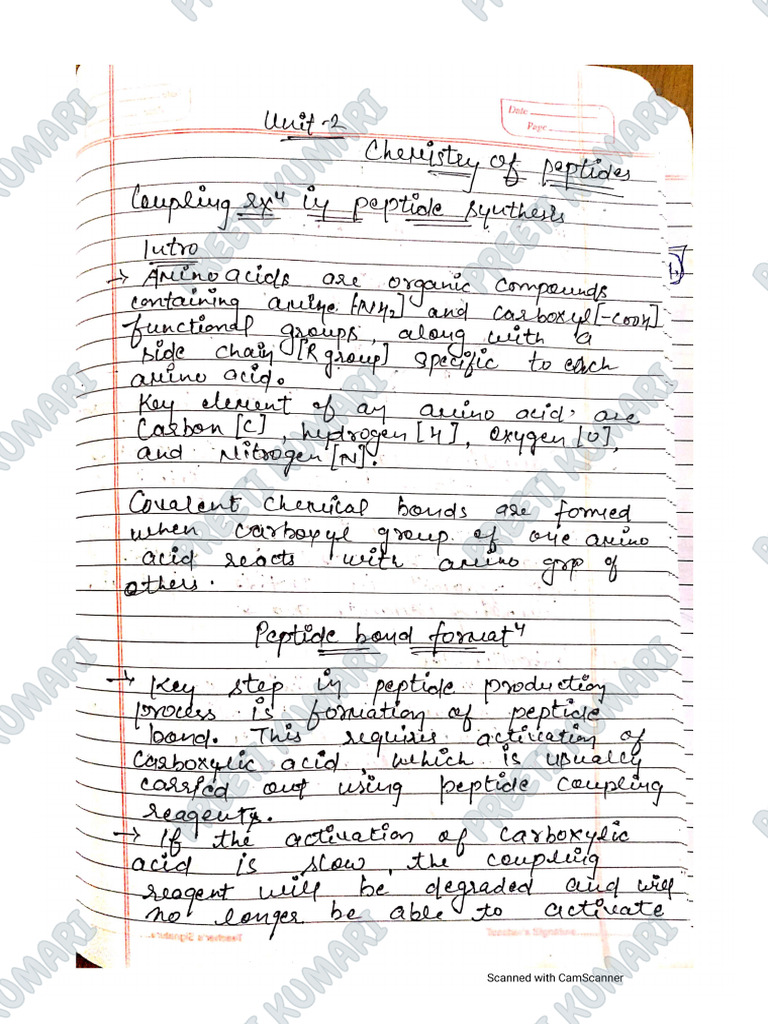 Unit-2
Date
Page
Chemistry of peptides
Coupling rxⁿ in peptide synthesis
Intro
→ Amino acids are organic compounds
containing amine [NH2] and carboxyl [-COOH]
functional groups, along with a
side chain [R group] specific to each
amino acid.
Key element of an amino acid are
Carbon [C], hydrogen [H], oxygen [O],
and Nitrogen [N].
Covalent chemical bonds are formed
when carboxyl group of one amino
acid reacts with amino grp of
others.
Peptide bond formatⁿ
→ Key step in peptide production
process is formation of peptide
bond. This requires activation of
carboxylic acid, which is usually
carried out using peptide coupling
reagents.
→ If the activation of carboxylic
acid is slow, the coupling
reagent will be degraded and will
no longer be able to activate
Scanned with CamScanner
PREETI KUMARI